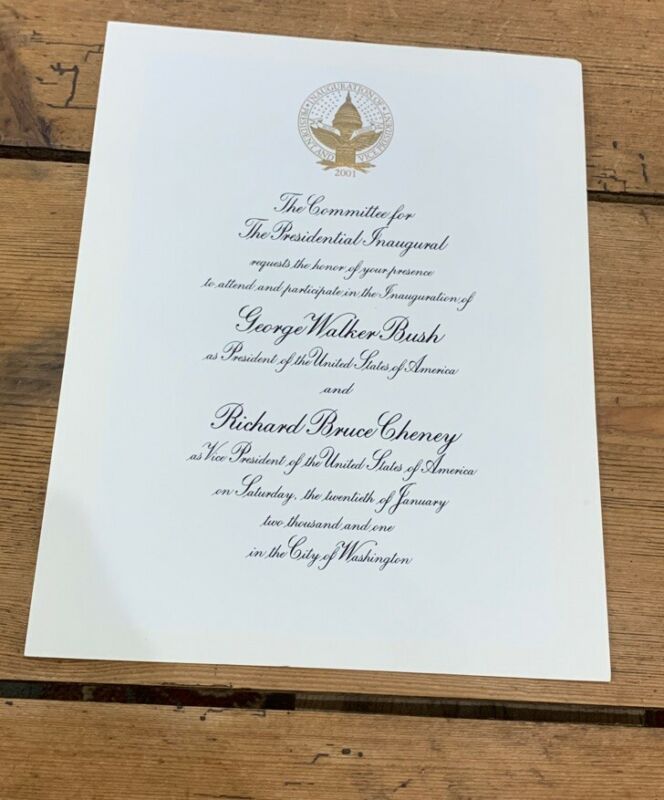 INAUGURATION OF PRESIDENT AND VICE PRESIDENT
2001
The Committee for
The Presidential Inaugural
requests the honor of your presence
to attend and participate in the Inauguration of
George Walker Bush
as President of the United States of America
and
Richard Bruce Cheney
as Vice President of the United States of America
on Saturday, the twentieth of January
two thousand and one
in the City of Washington